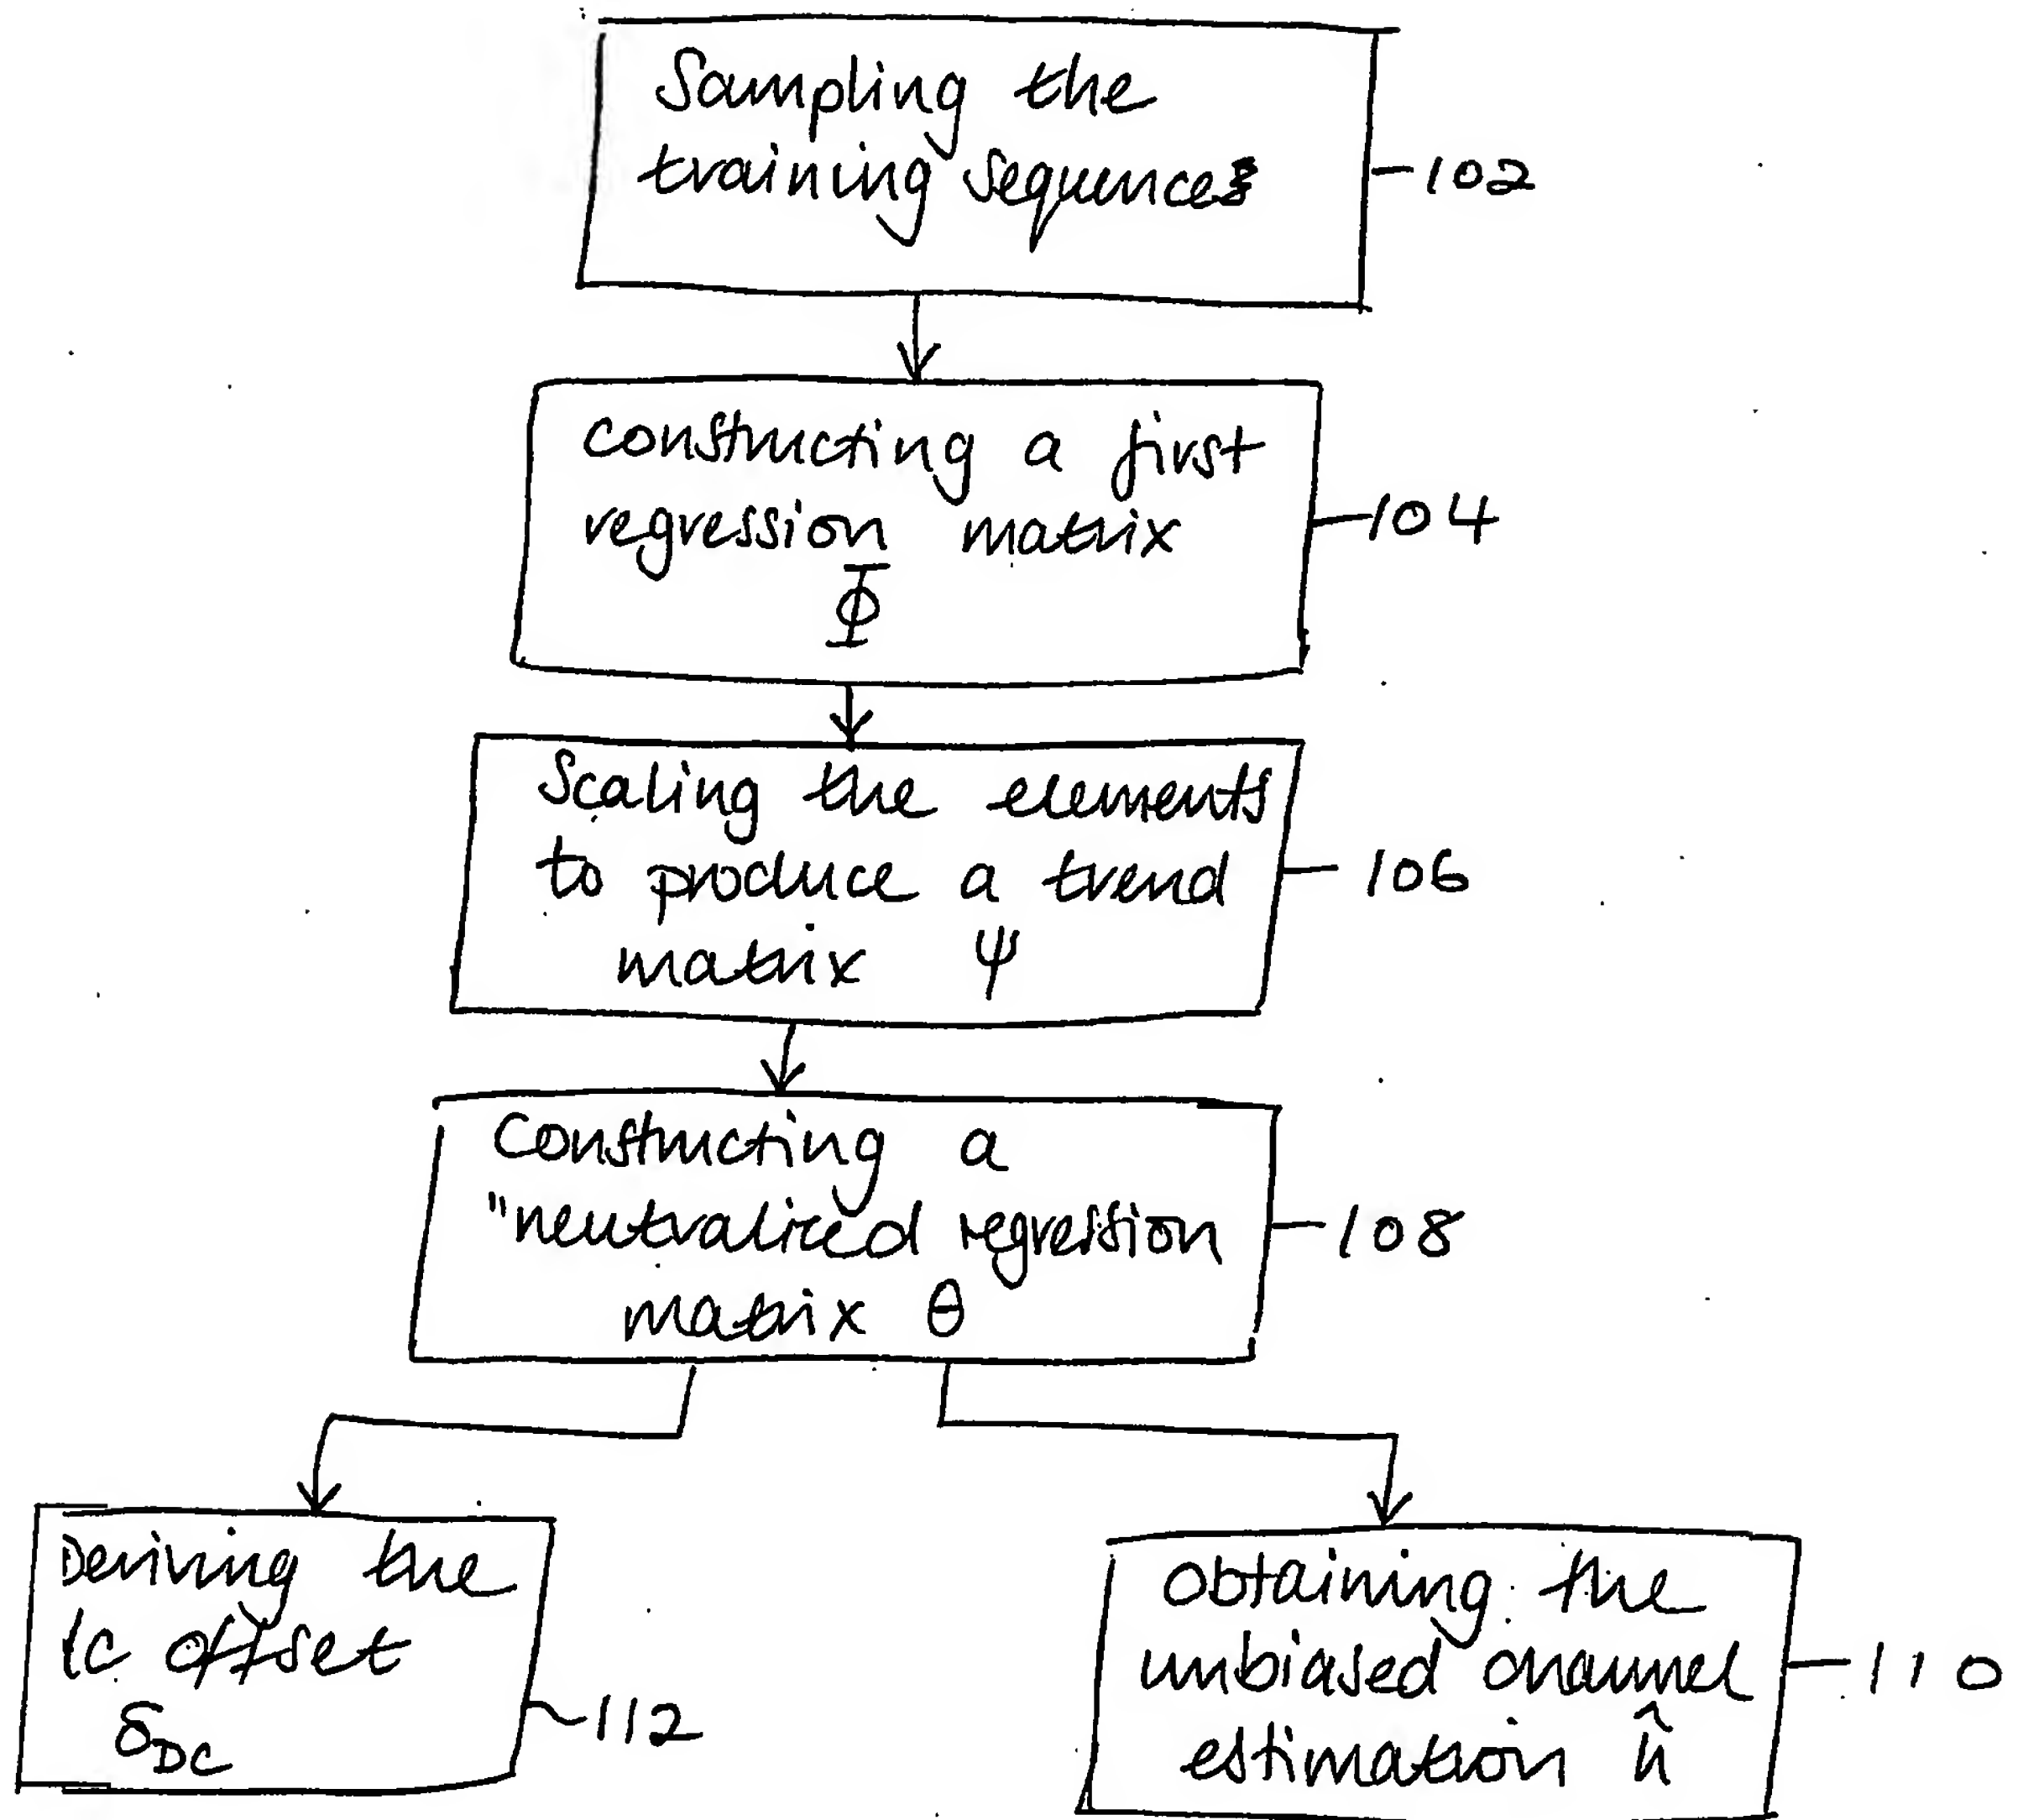 Sampling the
training sequences
102
constructing a first
regression matrix
Φ
104
Scaling the elements
to produce a trend
matrix ψ
106
Constructing a
"neutralized regression
matrix θ
108
Deriving the
offset
δDC
112
obtaining the
unbiased channel
estimation ĥ
110